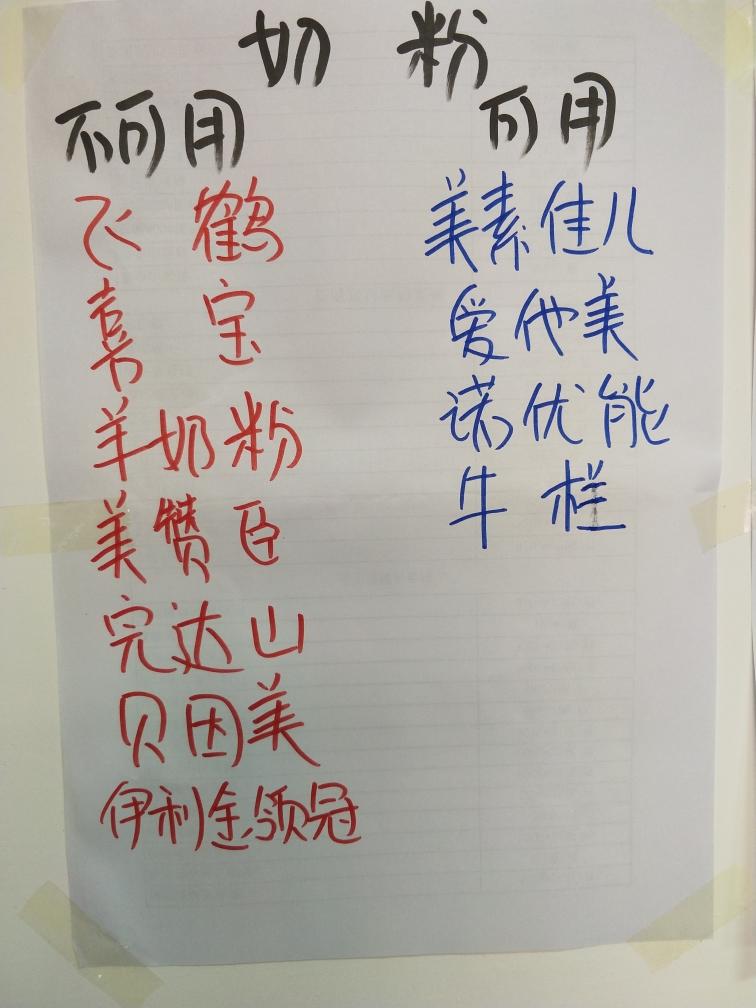 奶粉
不可用 可用
飞鹤 美素佳儿
喜宝 爱他美
羊奶粉 诺优能
美赞臣 牛栏
完达山
贝因美
伊利金领冠